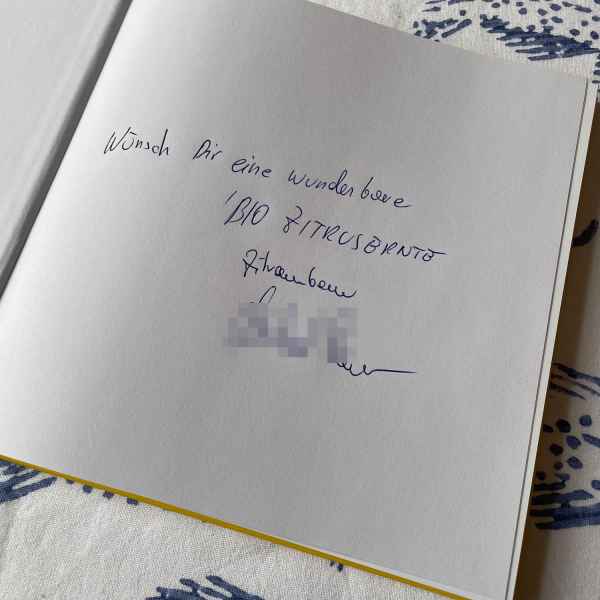 Wünsch Dir eine wunderbare
BIO ZITRUSERNTE